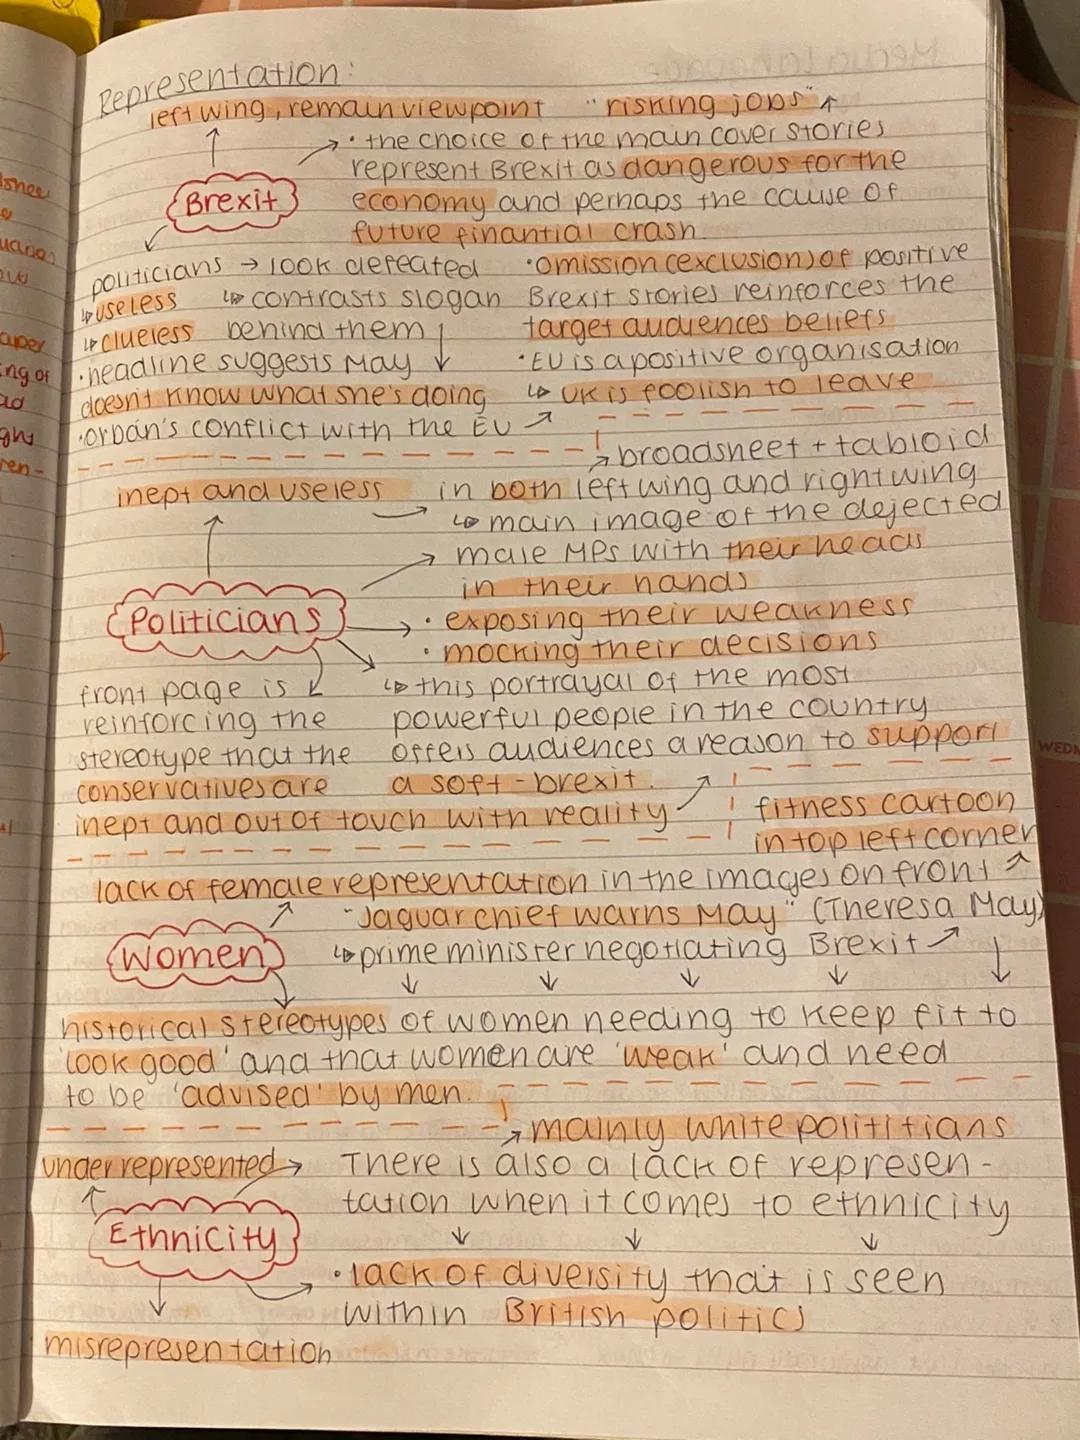 Representation:
left wing, remain viewpoint "risking jobs"
• the choice of the main cover stories
represent Brexit as dangerous for the
Brexit
economy and perhaps the cause of
future finantial crash.
politicians → look defeated
↳ useless ↳ contrasts slogan
↳ clueless behind them
• headline suggests May
doesn't know what she's doing
• orbán's conflict with the EU
• omission (exclusion) of positive
Brexit stories reinforces the
target audiences beliefs
• EU is a positive organisation
↳ UK is foolish to leave
broadsheet + tabloid
inept and useless → in both left wing and right wing
↳ main image of the dejected
male MPs with their heads
in their hands
Politicians
• exposing their weakness
• mocking their decisions
↳ this portrayal of the most
powerful people in the country
offers audiences a reason to support
a soft-brexit.
front page is
reinforcing the
stereotype that the
conservatives are
inept and out of touch with reality
fitness cartoon
in top left corner
lack of female representation in the images on front
"Jaguar chief warns May" (Theresa May)
Women
↳ prime minister negotiating Brexit
historical stereotypes of women needing to keep fit to
'look good' and that women are 'weak' and need
to be 'advised' by men.
mainly white polititians
underrepresented → There is also a lack of represen-
tation when it comes to ethnicity
Ethnicity
• lack of diversity that is seen
within British politics
misrepresentation
WEDN